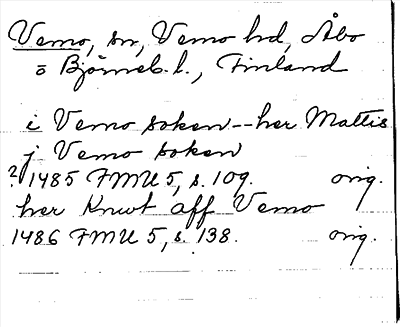 Vemo, sn, Vemo hd, Åbo
o Björneb. l., Finland
i Vemo soken -- her Mattis
j Vemo soken
? 1485 FMU 5, s. 109. orig.
her Knwt aff Vemo
1486 FMU 5, s. 138. orig.